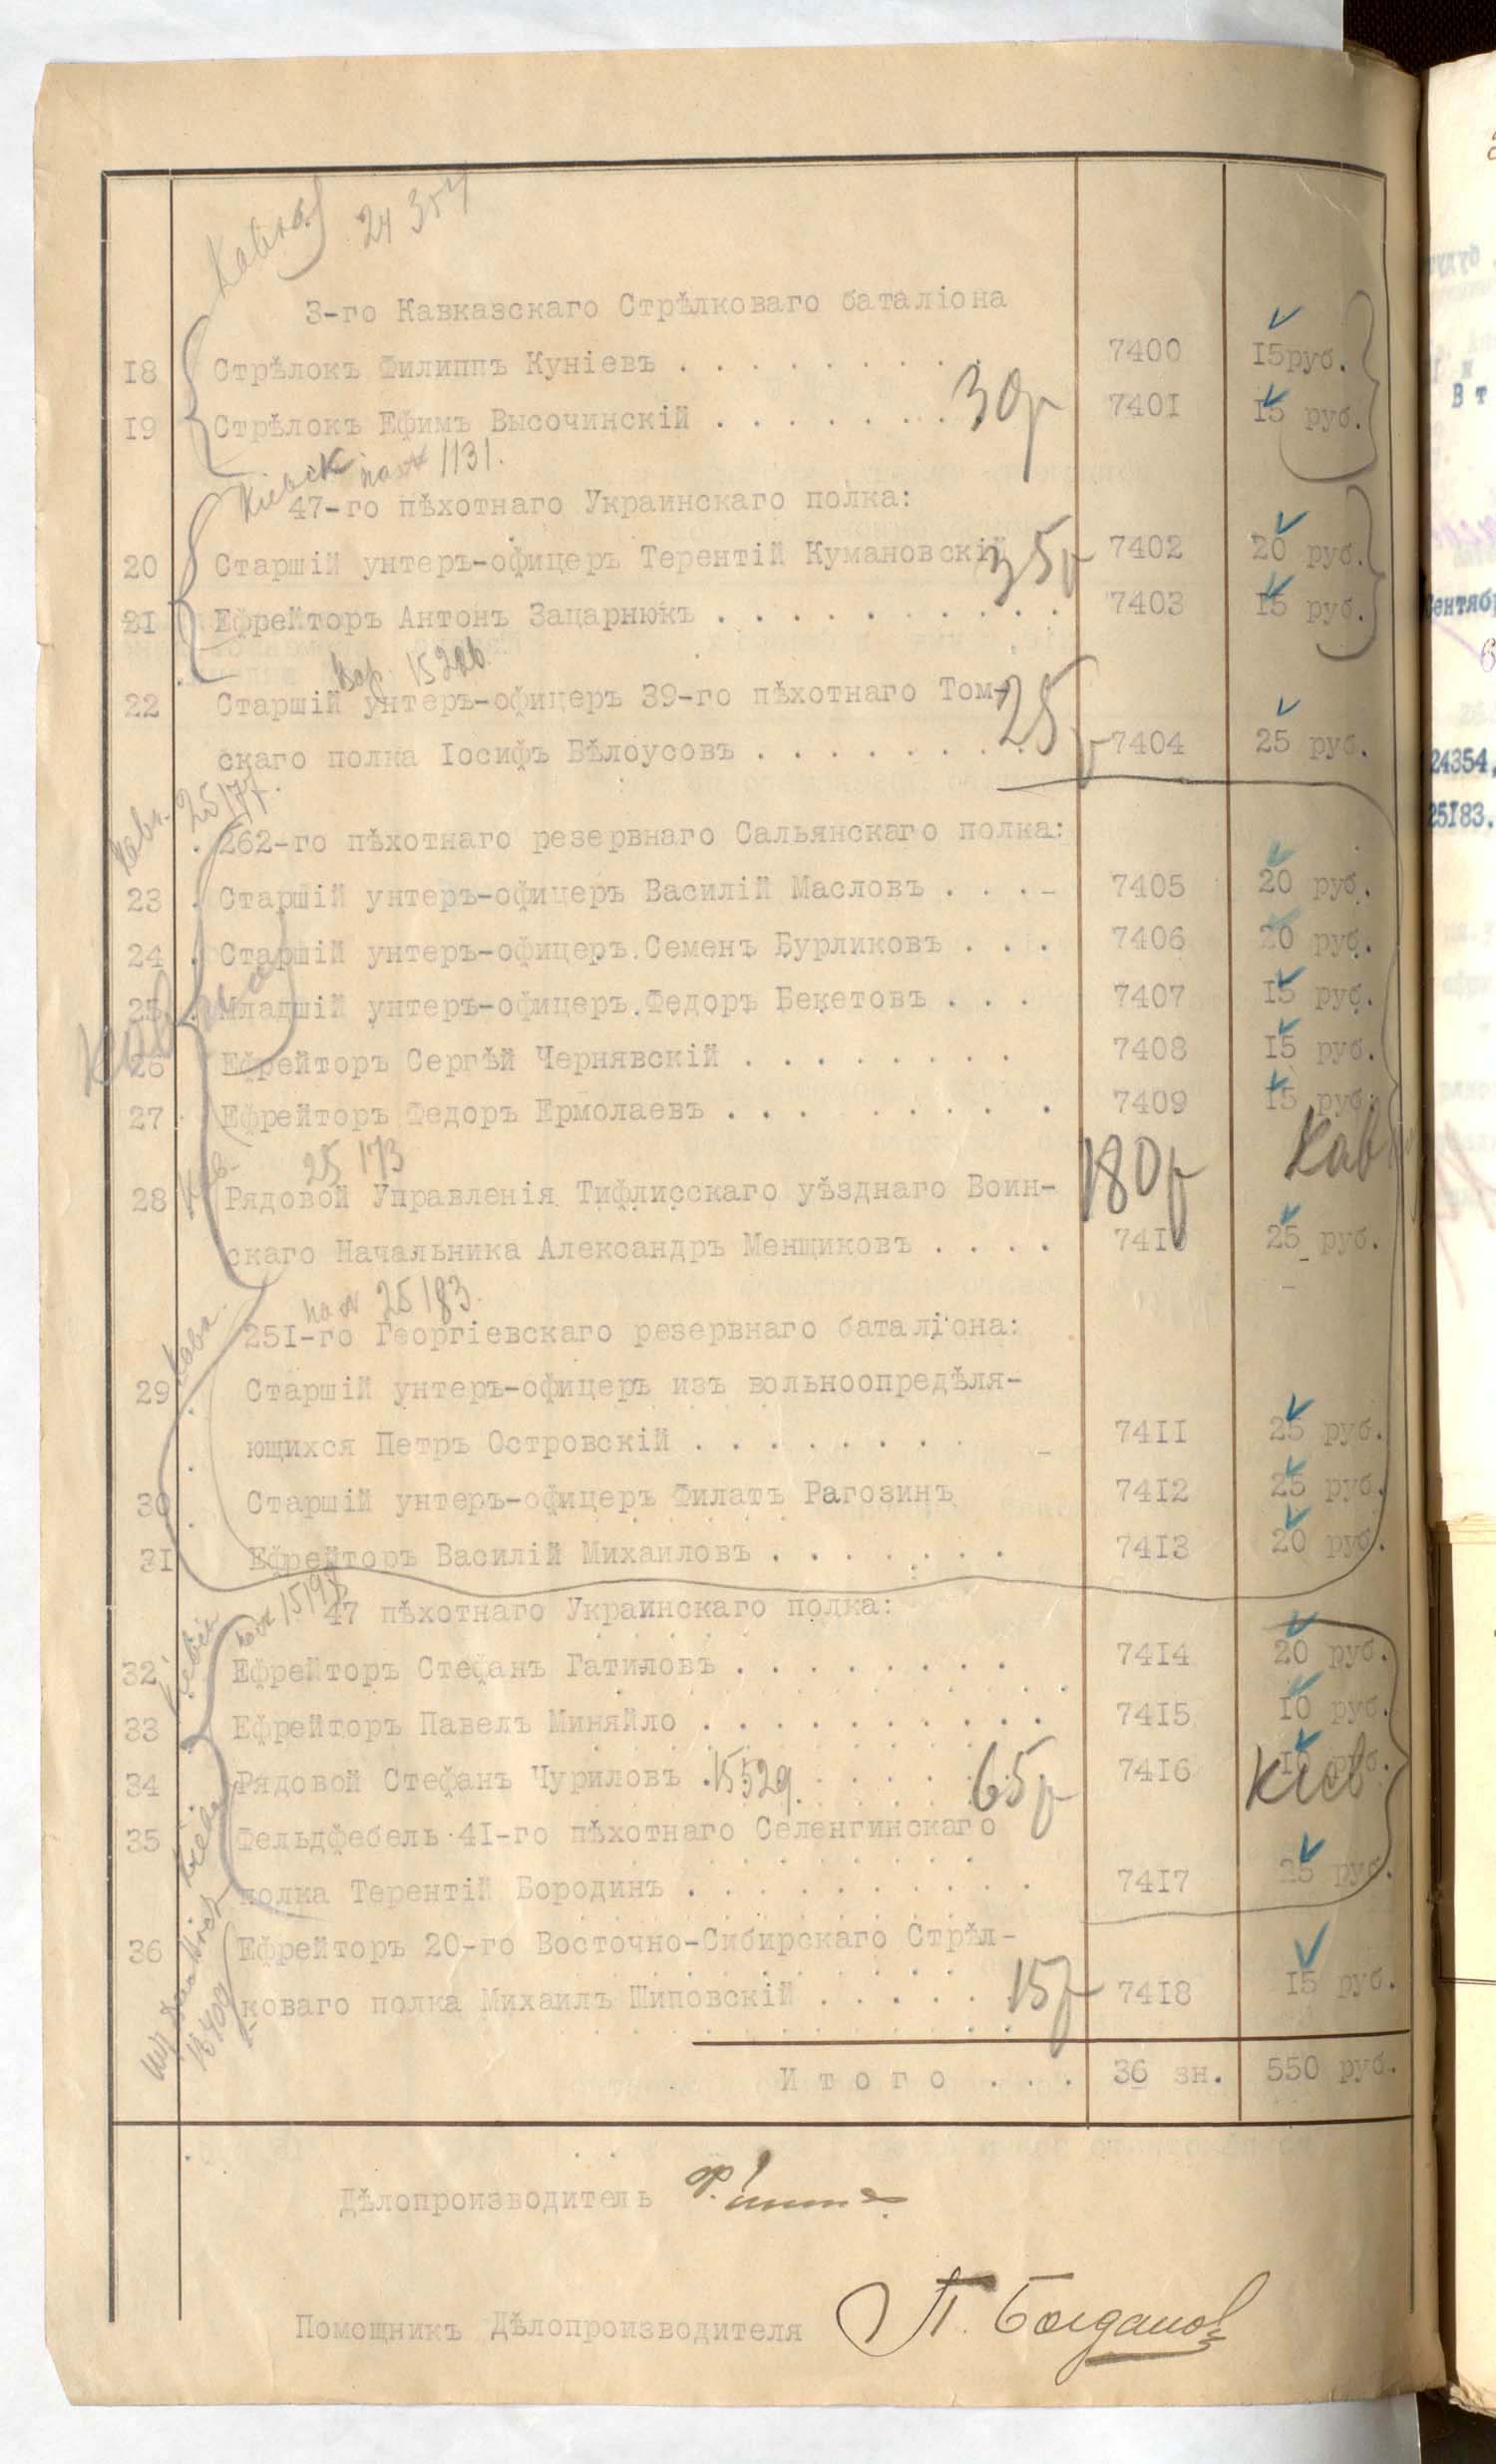 24354
3-го Кавказскаго Стрѣлковаго баталіона
18 Стрѣлокъ Филиппъ Куніевъ . . . . . . . . . . 7400 15руб.
19 Стрѣлокъ Ефимъ Высочинскій . . . . . . . 30р 7401 15 руб.
Кіевск 1131.
47-го пѣхотнаго Украинскаго полка:
20 Старшій унтеръ-офицеръ Терентій Кумановскій 35р 7402 20 руб.
21 Ефрейторъ Антонъ Зацарнюкъ . . . . . . . . . . 7403 15 руб.
22 Старшій унтеръ-офицеръ 39-го пѣхотнаго Том-
скаго полка Іосифъ Бѣлоусовъ . . . . . . . . 25р 7404 25 руб.
25177.
262-го пѣхотнаго резервнаго Сальянскаго полка:
23 Старшій унтеръ-офицеръ Василій Масловъ . . . - 7405 20 руб.
24 Старшій унтеръ-офицеръ Семенъ Бурликовъ . . . 7406 20 руб.
25 Младшій унтеръ-офицеръ Федоръ Бекетовъ . . . 7407 15 руб.
26 Ефрейторъ Сергѣй Чернявскій . . . . . . . . 7408 15 руб.
27 Ефрейторъ Федоръ Ермолаевъ . . . . . . . . . 7409 15 руб.
25173
180р Кав
28 Рядовой Управленія Тифлисскаго уѣзднаго Воин-
скаго Начальника Александръ Менщиковъ . . . . 7410 25 руб.
25183.
251-го Георгіевскаго резервнаго баталіона:
29 Старшій унтеръ-офицеръ изъ вольноопредѣля-
ющихся Петръ Островскій . . . . . . . . 7411 25 руб.
30 Старшій унтеръ-офицеръ Филатъ Рагозинъ 7412 25 руб.
31 Ефрейторъ Василій Михаиловъ . . . . . . . 7413 20 руб.
47 пѣхотнаго Украинскаго полка:
32 Ефрейторъ Стефанъ Гатиловъ . . . . . . . . 7414 20 руб.
33 Ефрейторъ Павелъ Миняйло . . . . . . . . . . 7415 10 руб.
34 Рядовой Стефанъ Чуриловъ . 15529 65р 7416 10 руб.
Кіев
35 Фельдфебель 41-го пѣхотнаго Селенгинскаго
полка Терентій Бородинъ . . . . . . . . . . 7417 25 руб.
36 Ефрейторъ 20-го Восточно-Сибирскаго Стрѣл-
коваго полка Михаилъ Шиповскій . . . . . 15р 7418 15 руб.
Итого . . . 36 зн. 550 руб.
Дѣлопроизводитель
Помощникъ Дѣлопроизводителя П. Богданов
24354,
25183.